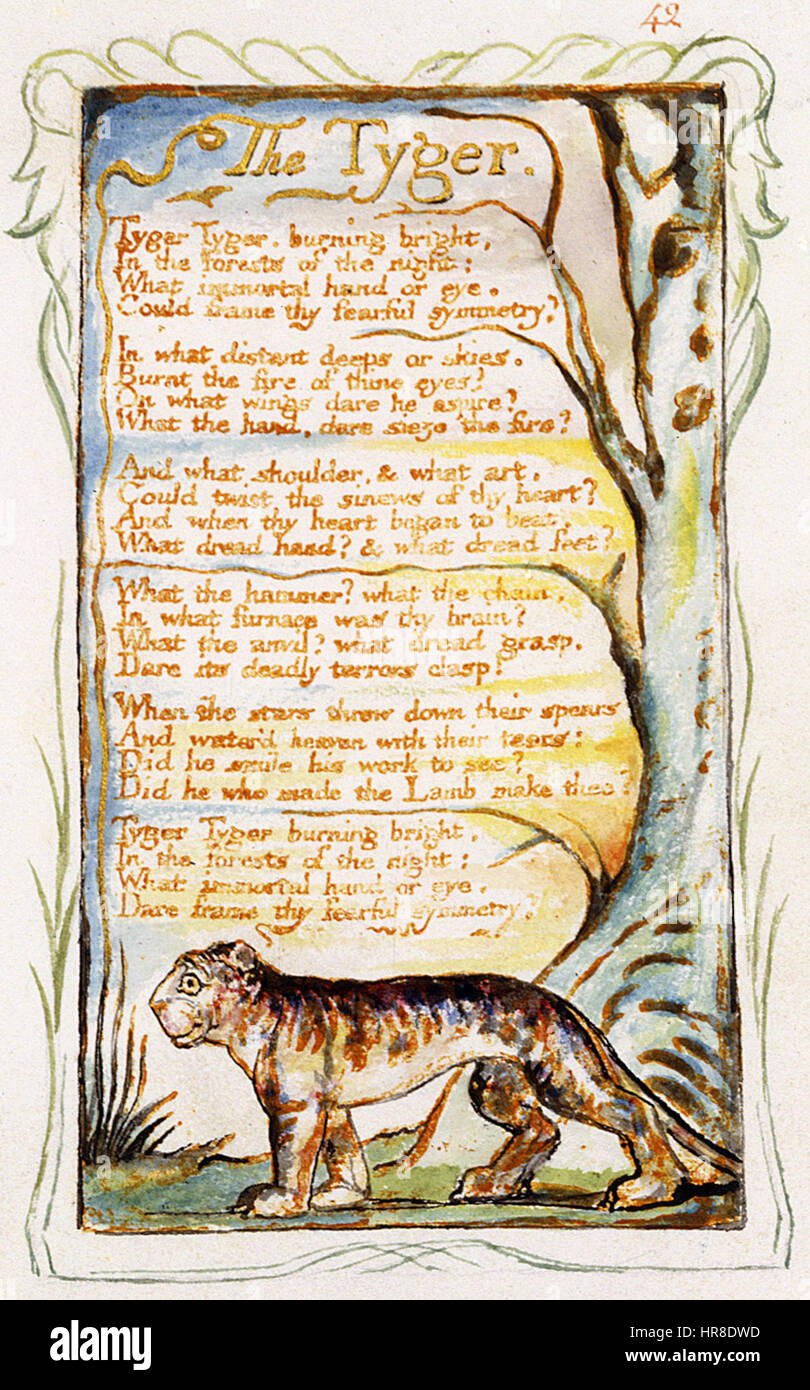 42
The Tyger.
Tyger Tyger, burning bright,
In the forests of the night;
What immortal hand or eye,
Could frame thy fearful symmetry?
In what distant deeps or skies.
Burnt the fire of thine eyes?
On what wings dare he aspire?
What the hand, dare sieze the fire?
And what shoulder, & what art,
Could twist the sinews of thy heart?
And when thy heart began to beat,
What dread hand? & what dread feet?
What the hammer? what the chain,
In what furnace was thy brain?
What the anvil? what dread grasp,
Dare its deadly terrors clasp!
When the stars threw down their spears
And water'd heaven with their tears:
Did he smile his work to see?
Did he who made the Lamb make thee?
Tyger Tyger burning bright,
In the forests of the night:
What immortal hand or eye,
Dare frame thy fearful symmetry?
alamy
a
alamy stock photo
HR8DWD
www.alamy.com